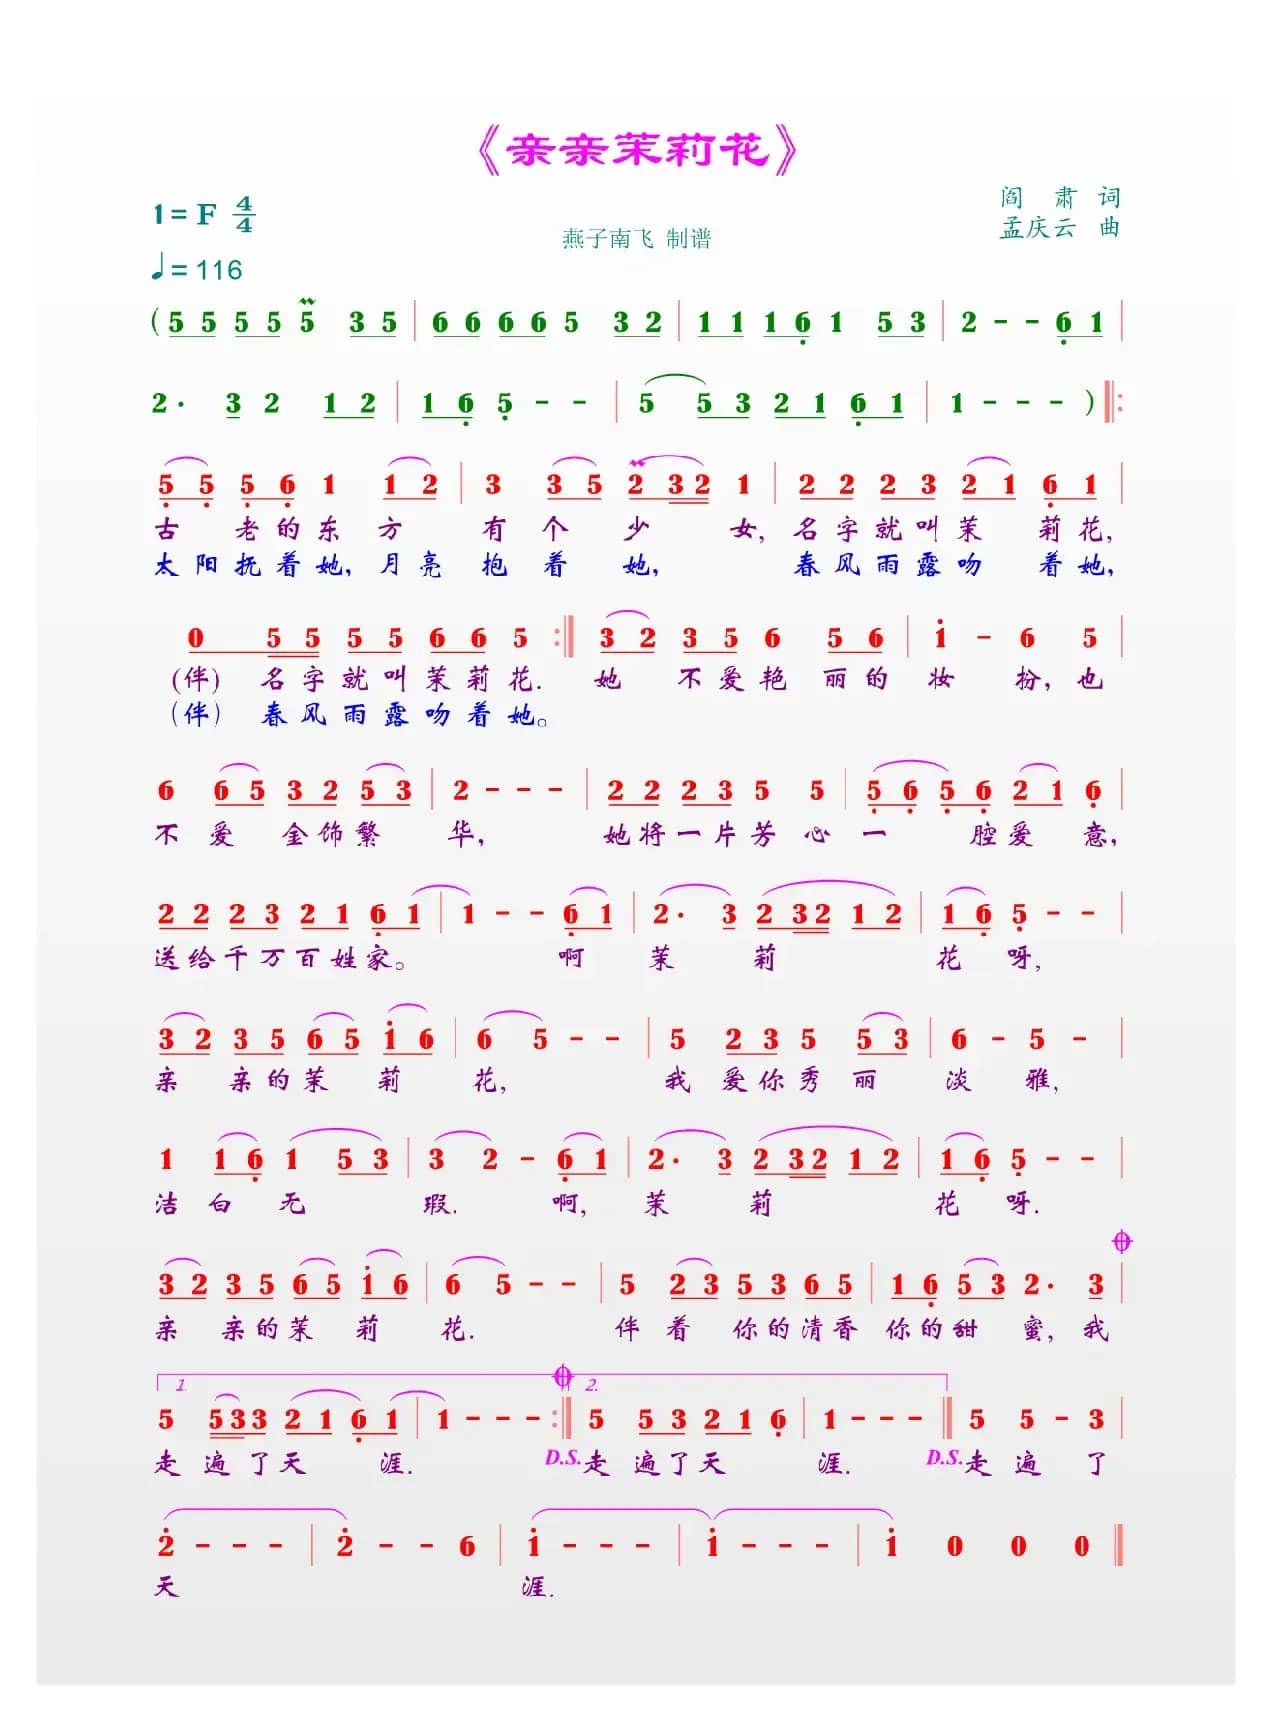 《亲亲茉莉花》
1=F 4/4
阎 肃 词
孟庆云 曲
燕子南飞 制谱
♩=116
(5 5 5 5 5 3 5 | 6 6 6 6 5 3 2 | 1 1 1 6 1 5 3 | 2 - - 6 1 |
2· 3 2 1 2 | 1 6 5 - - | 5 5 3 2 1 6 1 | 1 - - - ) ‖:
5 5 5 6 1 1 2 | 3 3 5 2 3 2 1 | 2 2 2 3 2 1 6 1 |
古 老的东方 有个少 女,名字就叫茉 莉花,
太阳抚着她,月亮抱着她, 春风雨露吻 着她,
0 5 5 5 5 6 6 5 :‖ 3 2 3 5 6 5 6 | 1 - 6 5 |
(伴)名字就叫茉莉花. 她 不爱艳丽的妆扮,也
(伴)春风雨露吻着她。
6 6 5 3 2 5 3 | 2 - - - | 2 2 2 3 5 5 | 5 6 5 6 2 1 6 |
不爱 金饰繁 华, 她将一片芳心一 腔爱 意,
2 2 2 3 2 1 6 1 | 1 - - 6 1 | 2· 3 2 3 2 1 2 | 1 6 5 - - |
送给千万百姓家。 啊 茉 莉 花 呀,
3 2 3 5 6 5 1 6 | 6 5 - - | 5 2 3 5 5 3 | 6 - 5 - |
亲 亲的茉 莉 花, 我 爱你秀丽 淡 雅,
1 1 6 1 5 3 | 3 2 - 6 1 | 2· 3 2 3 2 1 2 | 1 6 5 - - |
洁白无 瑕. 啊, 茉 莉 花 呀.
3 2 3 5 6 5 1 6 | 6 5 - - | 5 2 3 5 3 6 5 | 1 6 5 3 2· 3 |
亲 亲的茉 莉 花. 伴着 你的清香 你的甜 蜜,我
1. 2.
5 5 3 3 2 1 6 1 | 1 - - - :‖ 5 5 3 2 1 6 | 1 - - - ‖ 5 5 - 3 |
走遍了天 涯. D.S.走遍了天 涯. D.S.走 遍 了
2 - - - | 2 - - 6 | 1 - - - | 1 - - - | 1 0 0 0 ‖
天 涯.